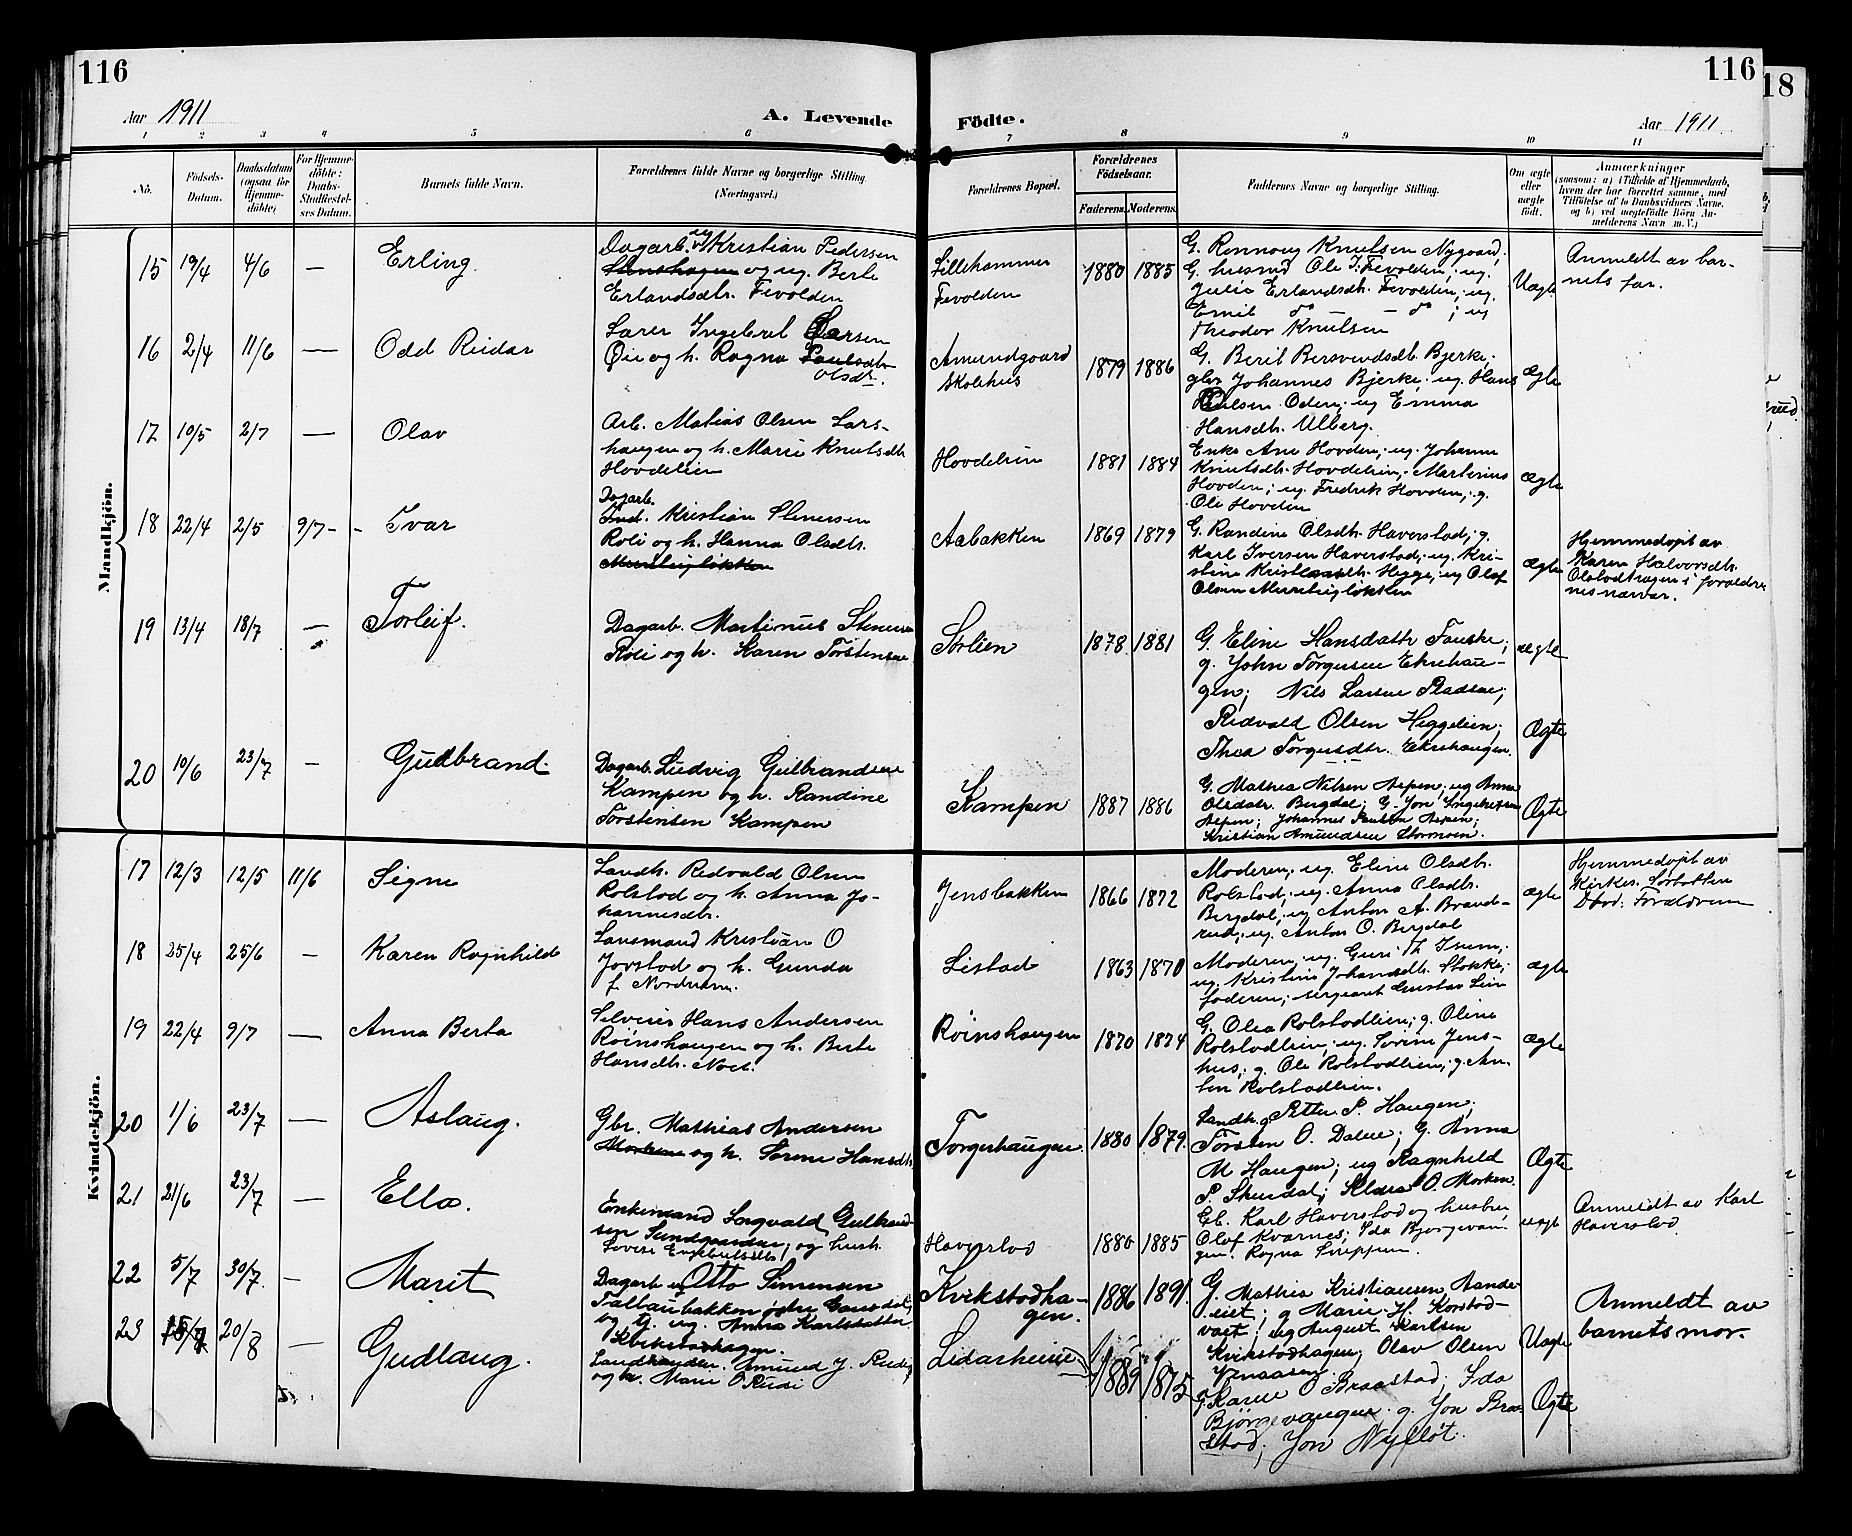 116
116
18
Aar 1911
A. Levende
Födte.
Aar 1911
1 2 3 4 5 6 7 8 9 10 11
No.
Födsels-
Datum.
Daabsdatum
(ogsaa for
Hjemme-
döbte)
For Hjemme-
döbte:
Daabs-
Stadfæstel-
ses Datum.
Barnets fulde Navn.
Forældrenes fulde Navne og borgerlige Stilling
(Næringsvei.)
Forældrenes Bopæl.
Forældrenes
Födselsaar.
Faderens.
Moderens.
Faddernes Navne og borgerlige Stilling.
Om ægte
eller
uægte
født.
Anmærkninger
(saasom: a) i Tilfælde af Hjemmedaab,
hvem der har forrettet samme, med
Tilføielse af to Daabsvidners Navne,
og b) ved uegtefødte Börn An-
melderens Navn m. V.)
Mandkjön.
15 19/4 4/6 — Erling.
Dagarb. ug Kristian Pedersen
og ug. Berte
Erlandsdtr. Fevolden
Lillehammer
Fevolden
1880 1885
G. Rønnoug Knutsen Nygaard;
G. husmd Ole J. Fevolden; ug.
Julie Erlandsdtr. Fevolden; ug.
Emil do — do; ug
Theodor Knutsen
Uægte
Anmeldt av bar-
nets far.
16 2/4 11/6 — Odd Reidar
Lærer Ingebret Larsen
Øie og h. Ragna Paulsdtr
Olsdtr.
Amundgaard
Skolehus
1879 1886
G. Berit Bersvendsdtr. Bjerke;
gbr Johannes Bjerke; ug. Hans
Paulsen Oden; ug Emma
Hansdtr. Ulberg.
ægte
17 10/5 2/7 — Olav
Arb. Matias Olsen Lars-
haugen og h. Marie Knutsdtr.
Hovdelien
Hovdelien
1881 1884
Enke Ane Hovden; ug. Johanne
Knutsdtr. Hovdelien; Martinus
Hovden; ug. Fredrik Hovden; g.
Ole Hovden
ægte
18 22/4 2/5 9/7 - - Ivar
Dagarb.
Ind. Kristian Stenersen
Roli og h. Hanna Olsdtr.
Aabakken
1869 1879
G. Randine Olsdtr. Haverstad; g.
Karl Iversen Haverstad; ug. Kri-
stine Kristiansdtr. Hegge; ug Olaf
Olsen
ægte
Hjemmedøpt av
Karen Halvorsdtr.
i forældre
nes nærvær.
19 13/4 18/7 — Torleif.
Dagarb. Martinus Stenersen
Roli og h. Karen Torstensen
Sørlien
1878 1881
G. Eline Hansdattr Fauske;
g. John Torgersen Ekrehau-
gen; Nils Larsen Pladsen;
Redvald Olsen Heggelien;
Thea Torgersdtr. Ekrehaugen.
uægte
Ægte
20 10/6 23/7 — Gudbrand.
Dagarb. Ludvig Gulbrandsen
Kampen og h. Randine
Torstensen Kampen
Kampen
1887 1886
G. Mathea Nilsen Aspen; ug Anna
Olsdatr. Bergdal; G. Jon Ingebretsen
Aspen; Johannes Paulsen Aspen;
Kristian Amundsen Stormoen.
Ægte
Kvindekjön.
17 12/3 12/5 11/6 Signe
Landh. Redvald Olsen
Rolstad og h. Anna Jo-
hannesdtr.
Jensbakken
1866 1872
Moderen; ug. Eline Olsdtr.
Rolstad; ug. Anna Olsdtr.
Bergdal; ug Anton A. Brand-
rud; ug. Anton O. Bergdal
ægte
Hjemmedøpt av
Kirkes.
Døvd. Forældrene
18 25/4 25/6 — Karen Ragnhild
Lensmand Kristian O
Jorstad og h. Gunda
f. Nordrum.
Listad
1863 1870
Moderen; ug. Guri Th. Isum;
ug. Kristine Johansdtr. Stokke;
faderen; sergeant Gustav Lien
ægte
19 22/4 9/7 — Anna Berta
Selveier Hans Andersen
Røinshaugen og h. Berte
Hansdtr. Noet.
Røinshaugen
1870 1874
G. Olea Rolstadlien; g. Oline
Rolstadlien; ug. Sørine Jens-
hus; g. Ole Rolstadlien; g. An-
ton Rolstadlien.
ægte
20 1/6 23/7 — Aslaug.
Gbr. Mathias Andersen
og h. Sørine Hansdtr.
Torgerhaugen.
1880 1879.
Landh. g Petter P. Haugen;
Torsten O. Dalen; g. Anna
M Haugen; ug Ragnhild
P. Skurdal; Klara O. Morken.
Ægte
21 21/6 23/7 — Ella.
Enkemand Torgvald Gulbrand-
sen og hush.
Lovise Engebretsdtr.
Haverstad
1880 1885
Gb. Karl Haverstad og hustru
Olaf Kvarnes; Ida Bjørgevau-
gen. Ragna Sveppen.
uægte
Anmeldt av Karl
Haverstad
22 5/7 30/7. — Marit
Dagarb ug Otto Simensen
østre Gausdal,
og tj. ug. Anna Karlsdatter
Kvikstadhagen.
Kvikstadha-
gen.
1886 1891.
G. Mathea Kristiansen Aande-
eiet; g Marie H. Korstad-
vaet; ug August Karlsen
Kvikstadhagen; Olav Olsen
Uægte
Anmeldt av
barnets mor.
23 20/8 — Gudlaug.
Landhandler. Amund J. Rudi
og h. Marie O Rudi
Lidarheim
1889 1875
G Karen O Braastad; Ida
Bjørgevaugen. g. Jon Braa-
stad; Jon Nyfløt.
Ægte